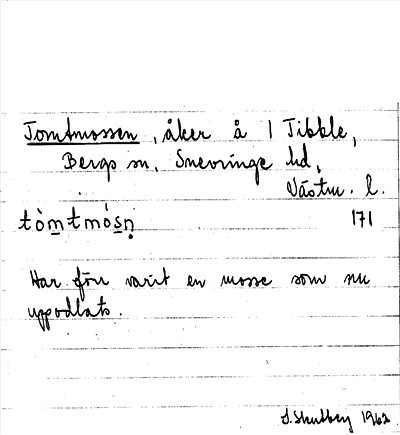 Tomtmossen, åker å 1 Tibble,
Bergs sn, Snevringe hd,
Västm. l.
tòm̲tmós̲ṇ 171
Har förr varit en mosse som nu
uppodlats.
1962